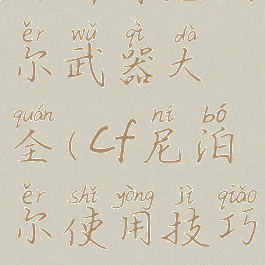 ěr wǔ qì dà
尔武器大
quán ní bó
全(cf尼泊
ěr shǐ yòng jì qiǎo
尔使用技巧